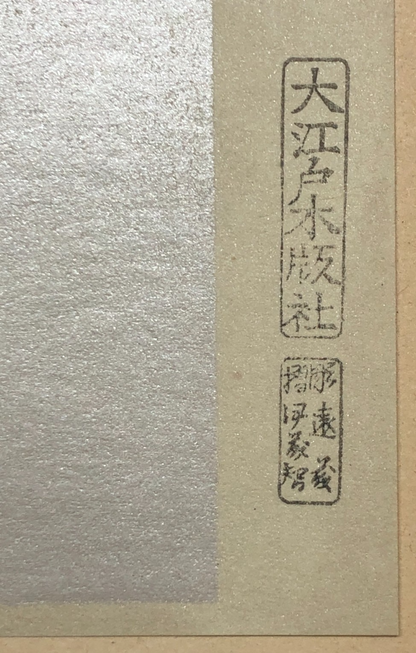 大江戸木版社
彫 遠藤
摺 伊藤智